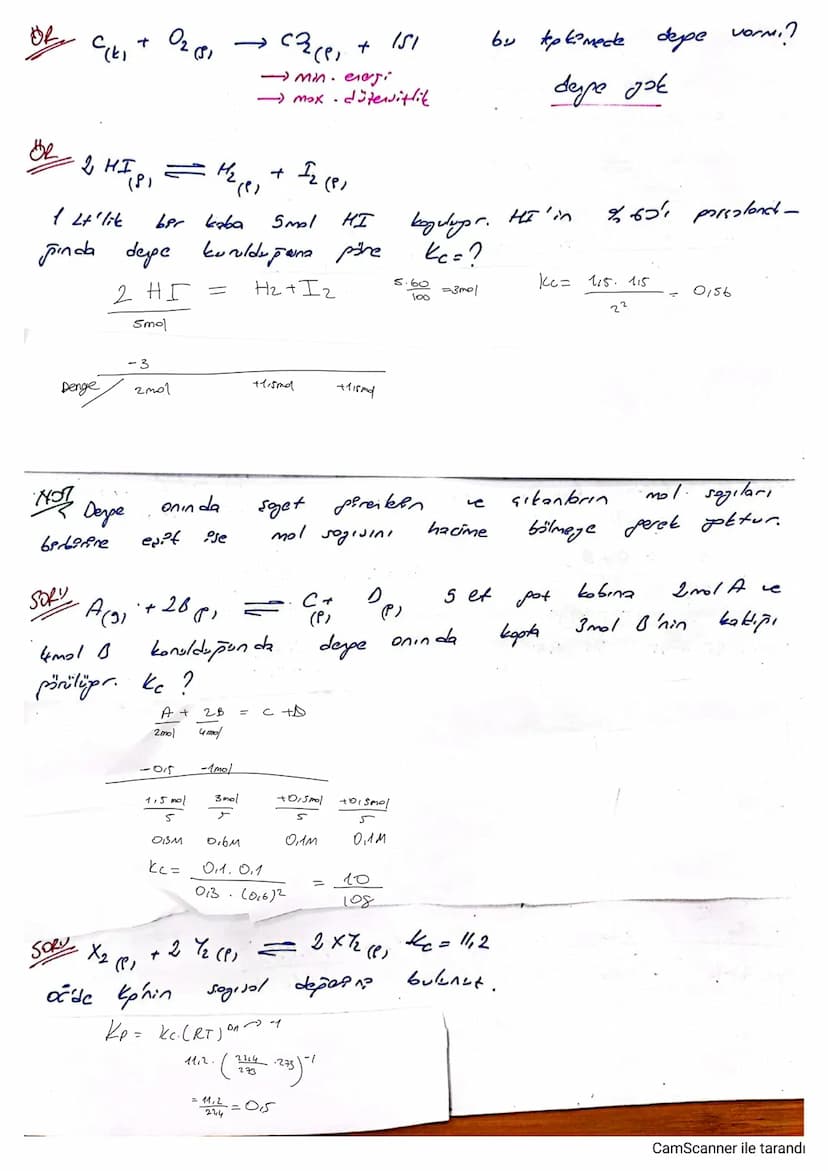 ÖR C(k) + O2(g) → CO2(g) + ISI bu tepkimede denge varmı?
→ min. enerji
→ max. düzensizlik
denge yok
ÖR 2 HI(g) ⇌ H2(g) + I2(g)
1 Lt'lik bir kaba 5mol HI koyuluyor. HI'in %60'ı parçalandı-
ğında denge kurulduğuna göre Kc=?
2 HI = H2 + I2 5.60/100 =3mol Kc = 1,5 . 1,5 / 2² = 0,56
5mol
-3
Denge 2mol +1,5mol +1,5mol
NOT Denge anında şayet girenlerin ve çıkanların mol sayıları
birbirine eşit ise mol sayısını hacime bölmeye gerek yoktur.
SORU A(g) + 2B(g) ⇌ C(g) + D(g) 5 lt gaz kabına 2mol A ve
4mol B konulduğunda denge anında kapta 3mol B'nin kaldığı
görülüyor. Kc ?
A + 2B = C + D
2mol 4mol
-0,5 -1mol
1,5mol/5 3mol/5 +0,5mol/5 +0,5mol/5
0,3M 0,6M 0,1M 0,1M
Kc = 0,1 . 0,1 / 0,3 . (0,6)² = 10/108
SORU X2(g) + 2 Y2(g) ⇌ 2 XY2(g) Kc = 11,2
0°C'de Kp'nin sayısal değerini bulunuz.
Kp = Kc.(RT)^Δn → -1
11,2 . (22,4/273 . 273)^-1
= 11,2/22,4 = 0,5
CamScanner ile tarandı